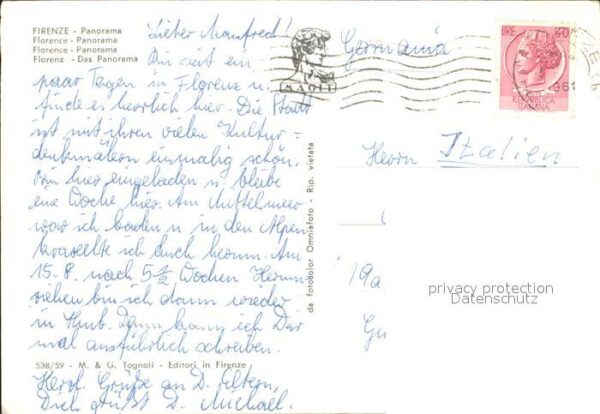 FIRENZE - Panorama
Florence - Panorama
Florence - Panorama
Florenz - Das Panorama
Lieber Manfred!
Bin seit ein
paar Tagen in Florenz u.
finde es herrlich hier. Die Stadt
ist mit ihren vielen Kultur =
denkmälern einmalig schön.
Bin hier eingeladen u. bleibe
eine Woche hier. Am Mittelmeer
war ich baden u in den Alpen
kraxelte ich auch herum. Am
15.8. nach 5 1/2 Wochen Herum
ziehen bin ich dann wieder
in Hmb. Dann kann ich Dir
mal ausführlich schreiben.
538/59 - M. & G. Tognoli - Editori in Firenze
Herzl. Grüße an D. Eltern,
Dich grüßt D. Michael.
da fotocolor Omniafoto - Rip. vietata
Germania
LIRE 40
REPUBBLICA
ITALIANA
1961
Herrn
Italien
privacy protection
Datenschutz